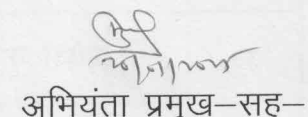 अभियंता प्रमुख–सह–